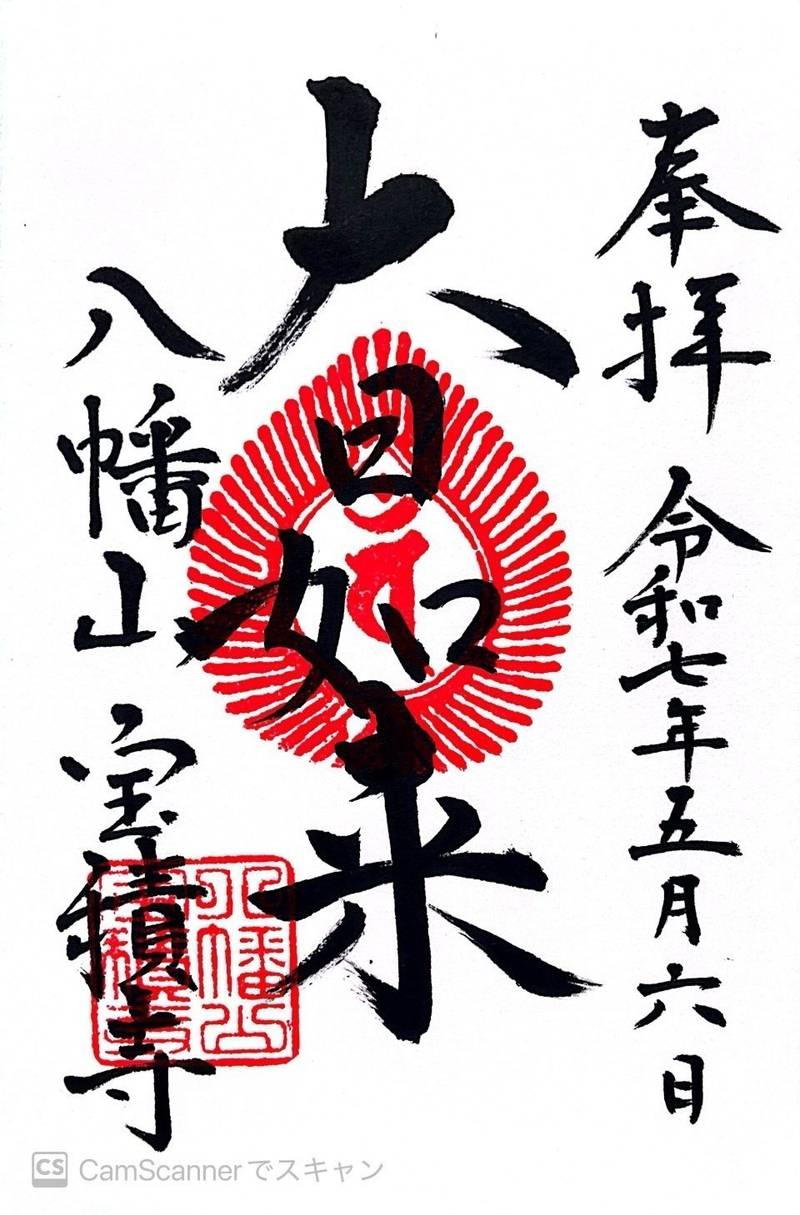 奉拝 令和七年五月六日
大日如来
八幡山 宝積寺
八幡山
宝積寺
CS CamScannerでスキャン